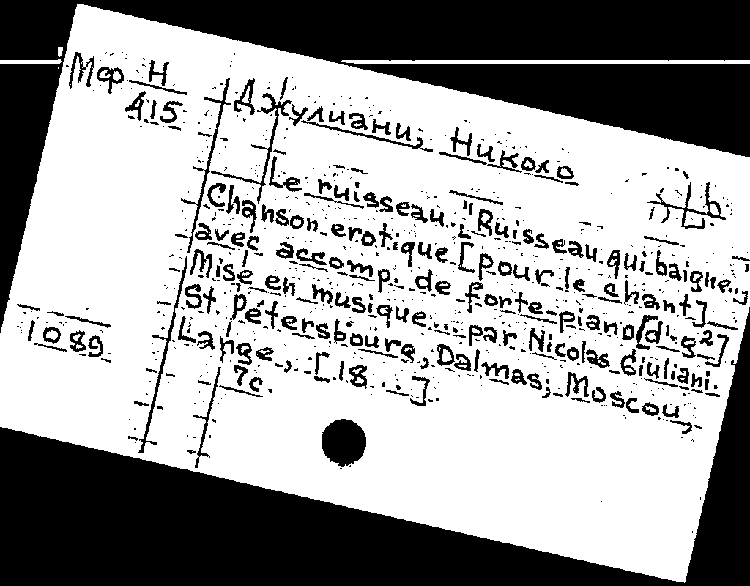 Мф Н
415
Джулиани, Николо
Le ruisseau. ["Ruisseau qui baigne..]
Chanson erotique [pour le chant]
avec accomp. de forte-piano [d¹-g²].
Mise en musique... par Nicolas Giuliani.
St. Pétersbourg, Dalmas; Moscou,
Lange, [18...].
7c.
1089